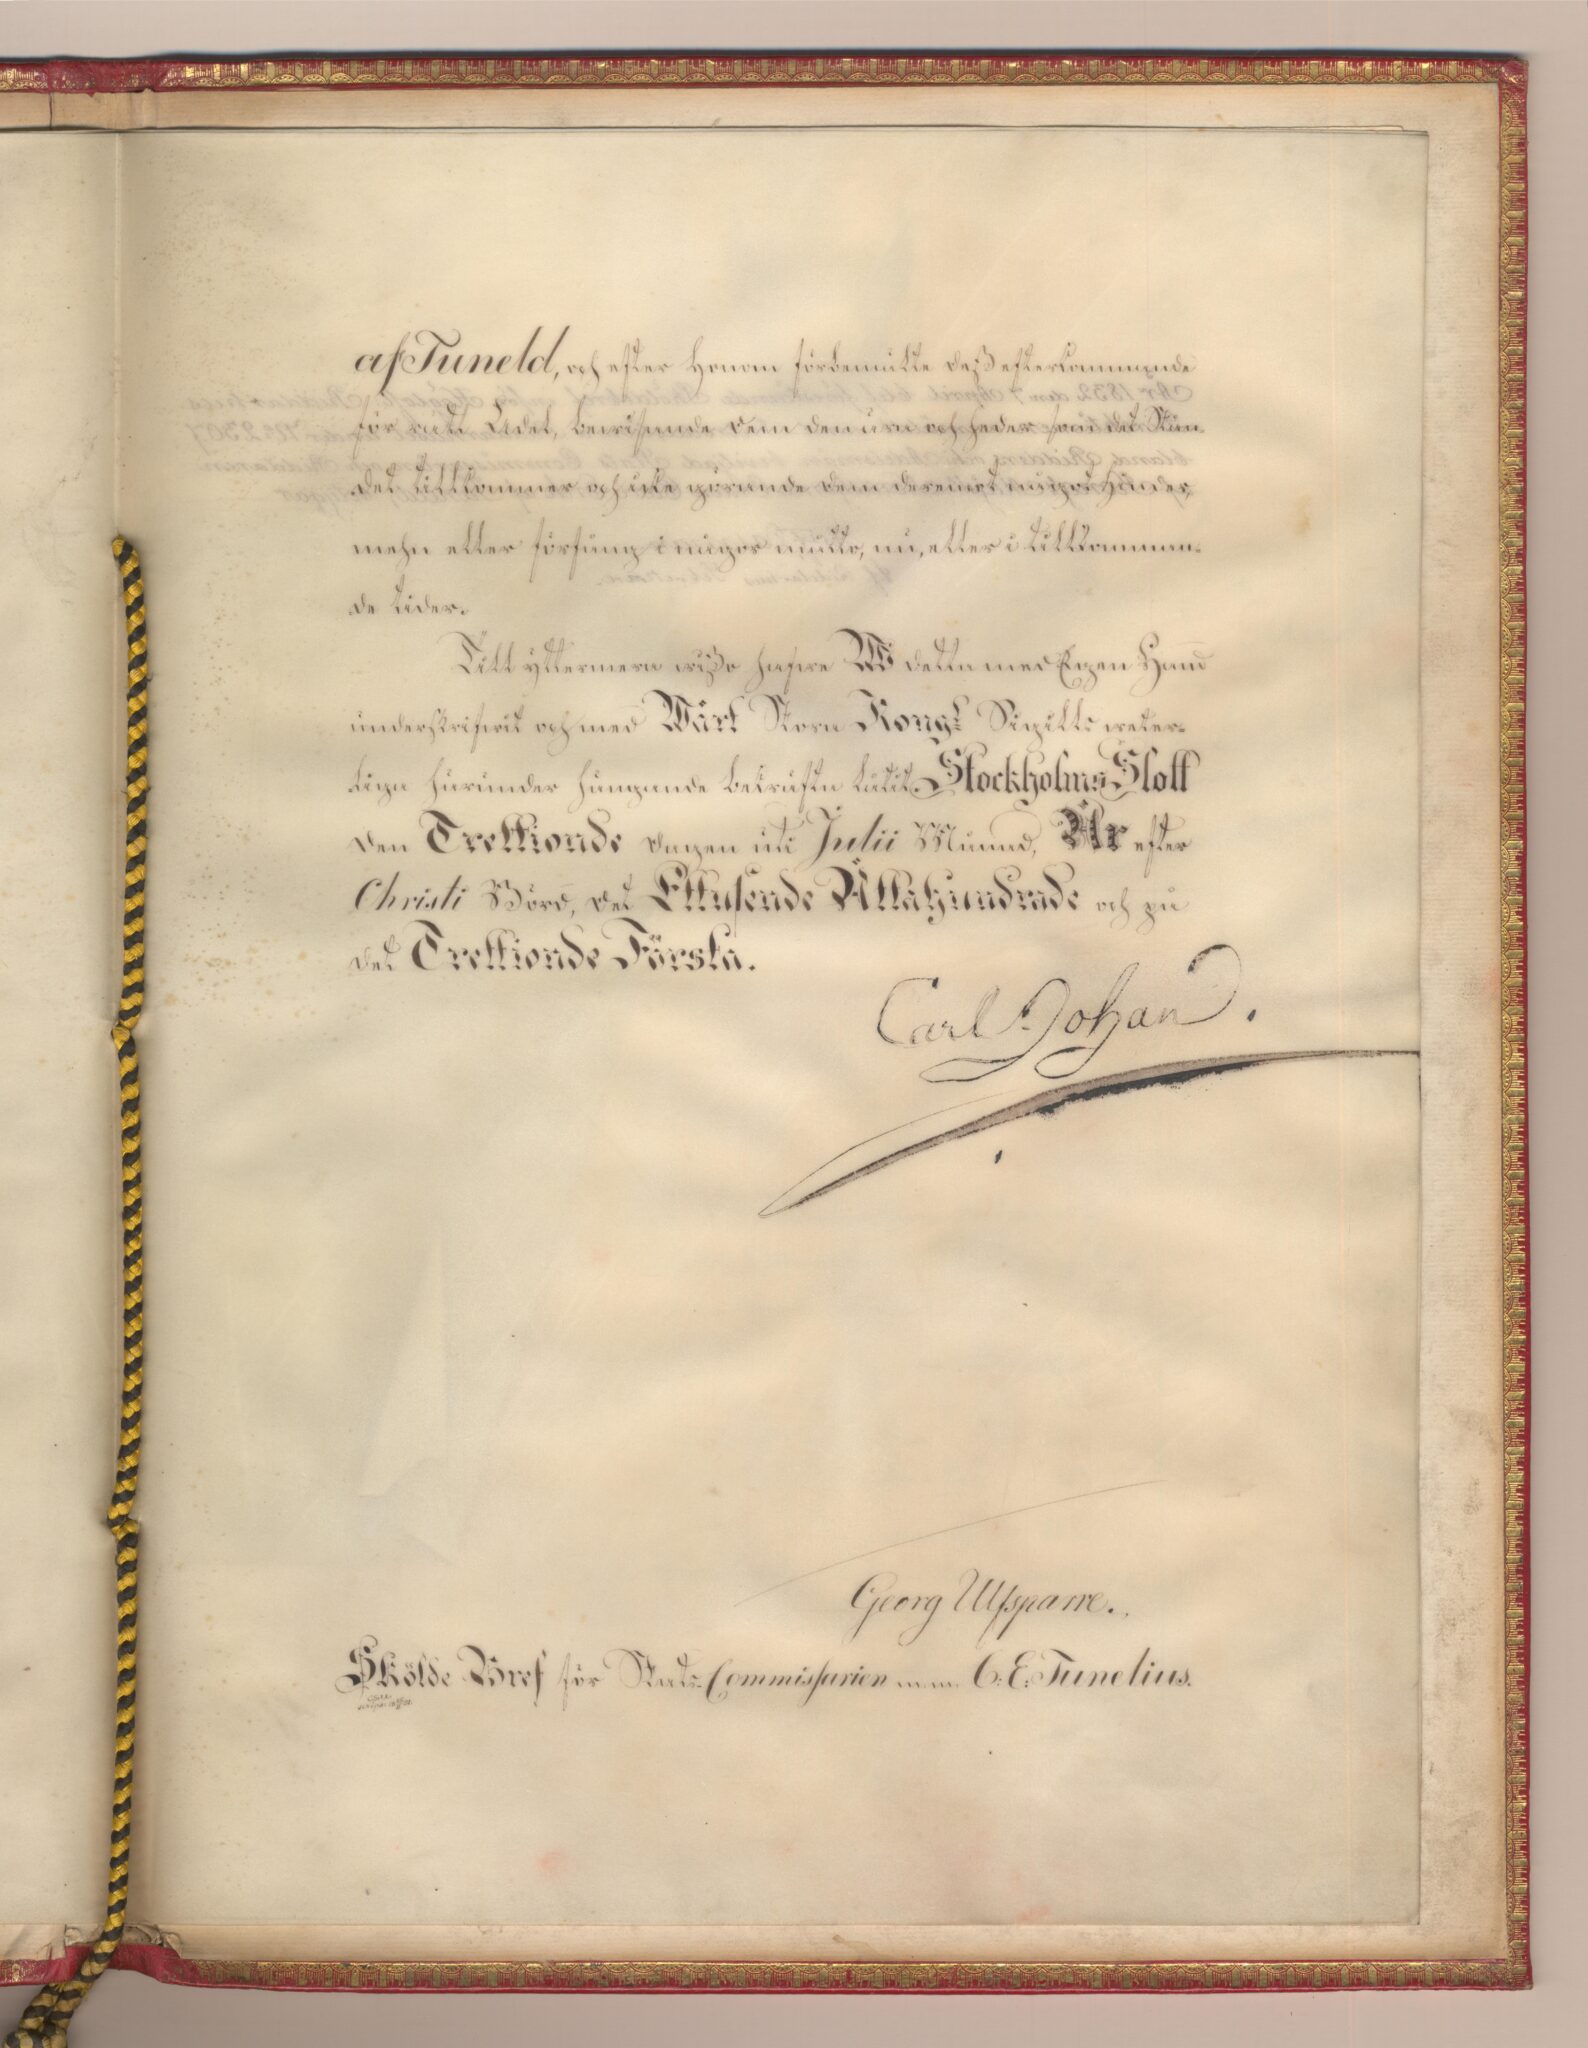 af Tuneld, och efter Honom förbemälte dess efterkommande
för rätt Adel, bewisande dem den ära och heder som det Stån-
det tillkommer och icke görande dem deremot något hinder,
mehn eller förfång i någor måtto, nu, eller i tillkomman-
de tider.
Till yttermera wisso hafwe Wi detta med Egen Hand
underskrifwit och med Wårt Stora Kongl. Sigills weder-
liga härunder hängande bekräfta låtit. Stockholms Slott
den Trettionde dagen uti Julii Månad, År efter
Christi Börd, det Ettusende Åttahundrade och på
det Trettionde Första.
Carl Johan.
Georg Ulfsparre.
Sköldebref för Stats-Commissarien m.m. C. E. Tunelius.